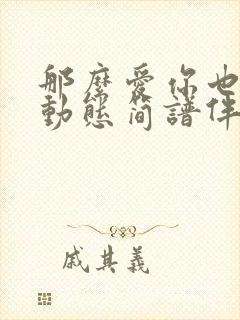 那麼愛你也
動態简譜伴
戚其義